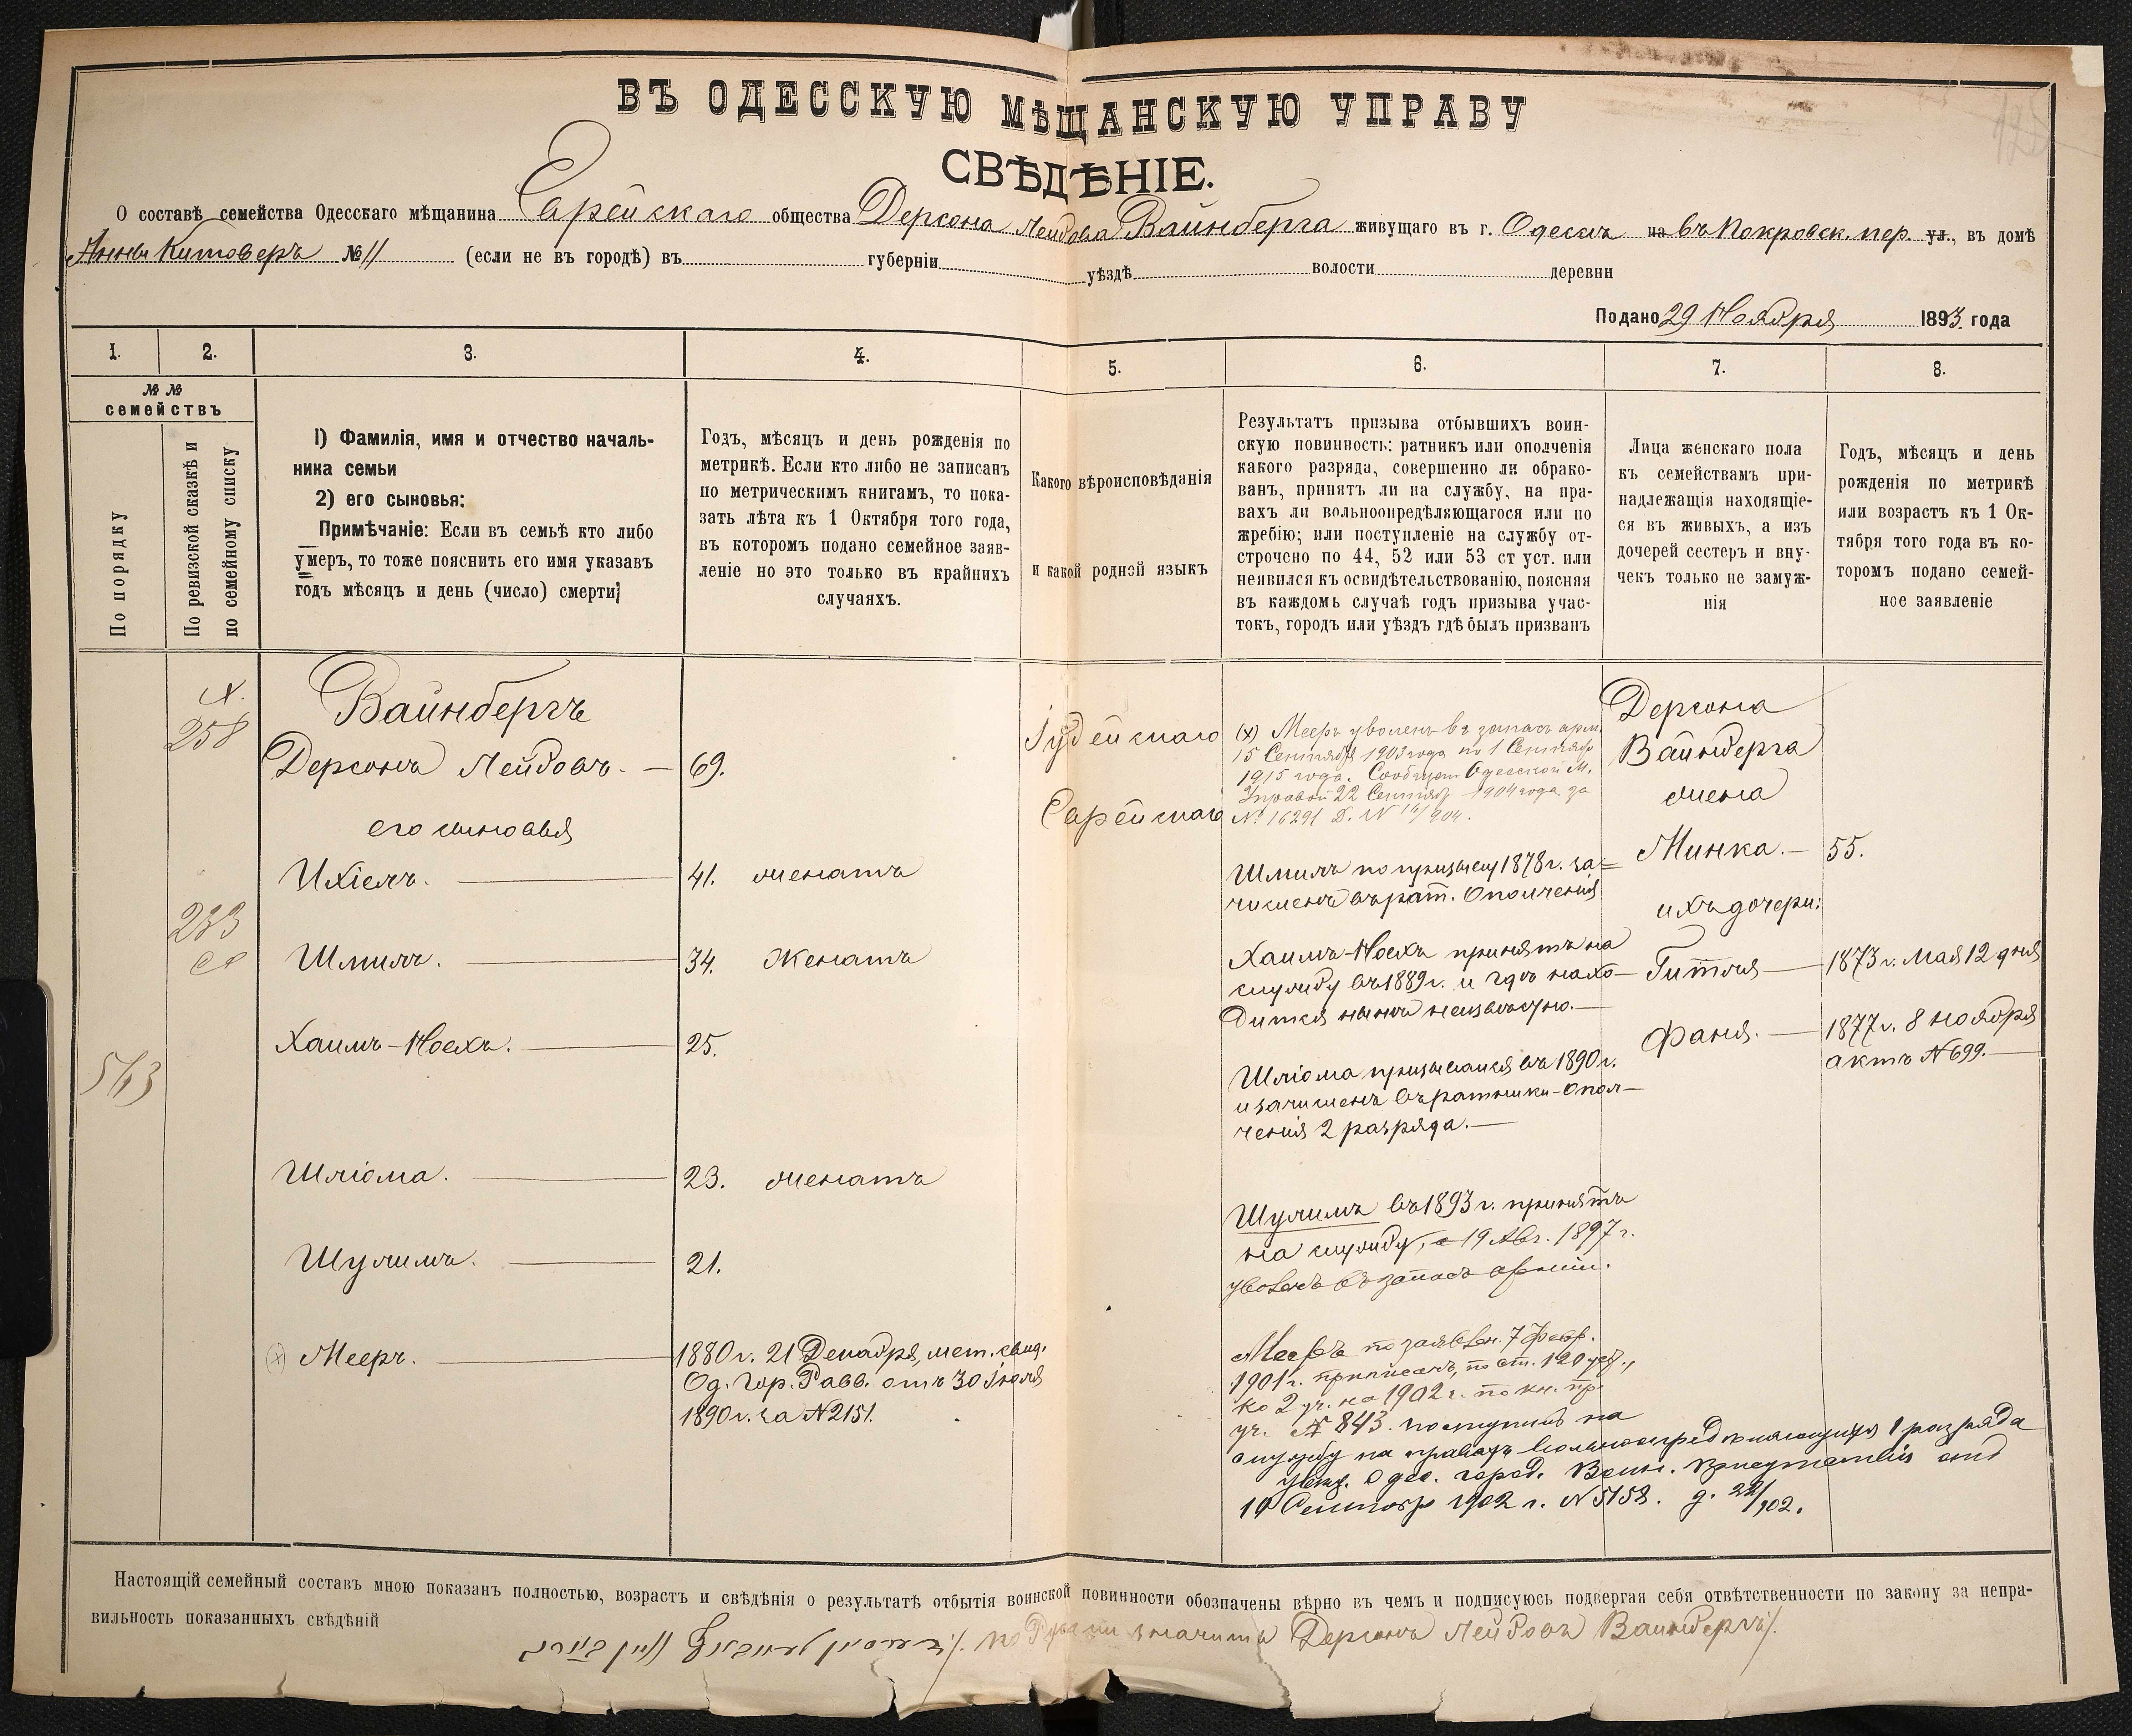 ВЪ ОДЕССКУЮ МѢЩАНСКУЮ УПРАВУ
СВѢДѢНІЕ.
О составѣ семейства Одесскаго мѣщанина Еврейскаго общества Герсона Лейбова Вайнберга живущаго въ г. Одессѣ на въ Покровск. пер. ул., въ домѣ
Анны Китоверъ № 11 (если не въ городѣ) въ губерніи уѣздѣ волости деревни
Подано 29 Ноября 1893 года
1. 2. 3. 4. 5. 6. 7. 8.
№ №
семействъ
По порядку
По ревизской сказкѣ и
по семейному списку
1) Фамилія, имя и отчество началь-
ника семьи
2) его сыновья:
Примѣчаніе: Если въ семьѣ кто либо
умеръ, то тоже пояснить его имя указавъ
годъ мѣсяцъ и день (число) смерти;
Годъ, мѣсяцъ и день рожденія по
метрикѣ. Если кто либо не записанъ
по метрическимъ книгамъ, то пока-
зать лѣта къ 1 Октября того года,
въ которомъ подано семейное заяв-
леніе но это только въ крайнихъ
случаяхъ.
Какого вѣроисповѣданія
и какой родной языкъ
Результатъ призыва отбывшихъ воин-
скую повинность: ратникъ или ополченія
какого разряда, совершенно ли обрако-
ванъ, принятъ ли на службу, на пра-
вахъ ли вольноопредѣляющагося или по
жребію; или поступленіе на службу от-
строчено по 44, 52 или 53 ст уст. или
неявился къ освидѣтельствованію, поясняя
въ каждомъ случаѣ годъ призыва учас-
токъ, городъ или уѣздъ гдѣ былъ призванъ
Лица женскаго пола
къ семействамъ при-
надлежащія находящіе-
ся въ живыхъ, а изъ
дочерей сестеръ и вну-
чекъ только не замуж-
нія
Годъ, мѣсяцъ и день
рожденія по метрикѣ
или возрастъ къ 1 Ок-
тября того года въ ко-
торомъ подано семей-
ное заявленіе
258
233
543
Вайнбергъ
Герсонъ Лейбовъ. — 69.
его сыновья
Ихіель. — 41. женатъ
Шмиль. — 34. Женатъ
Хаимъ-Ноехъ. — 25.
Шліома. — 23. женатъ
Шулимъ. — 21.
(х) Мееръ. — 1880 г. 21 Декабря, мет. свид.
Од. Гор. Равв. отъ 30 Іюля
1890 г. за № 2151.
Іудейскаго
Еврейскаго
(х) Мееръ уволенъ въ запасъ арм.
15 Сентября 1903 года по 1 Сентября
1915 года. Сообщен Одесской М.
Управой 22 Сентяб 1904 года за
№ 16291
Шмиль по призыву 1878 г. за=
численъ въ рат. Ополченія
Хаимъ-Ноехъ принятъ на
службу въ 1889 г. и гдѣ нахо-
дится нынѣ неизвѣстно.—
Шліома призывался въ 1890 г.
и зачисленъ въ ратники-опол-
ченія 2 разряда.—
Шулимъ въ 1893 г. принятъ
на службу, а 19 Авг. 1897 г.
уволенъ въ запасъ арміи.
Мееръ по заявлен. 7 Февр.
1901 г. приписанъ, по ст. 120 уст.,
ко 2 уч. на 1902 г. по кн. пр.
уч. № 843. поступилъ на
службу на правахъ вольноопредѣляющихся 1 разряда
увед. Одес. город. Воин. присутствія отъ
10 Сентябр 1902 г. № 5158. д. 22/902.
Герсона
Вайнберга
жена
Минка. — 55.
ихъ дочери:
Гитля — 1873 г. Мая 12 дня
Фаня. — 1877 г. 8 ноября
актъ № 699.—
Настоящій семейный составъ мною показанъ полностью, возрастъ и свѣдѣнія о результатѣ отбытія воинской повинности обозначены вѣрно въ чемъ и подписуюсь подвергая себя отвѣтственности по закону за непра-
вильность показанныхъ свѣдѣній
по Русски значитъ Герсонъ Лейбовъ Вайнбергъ/.